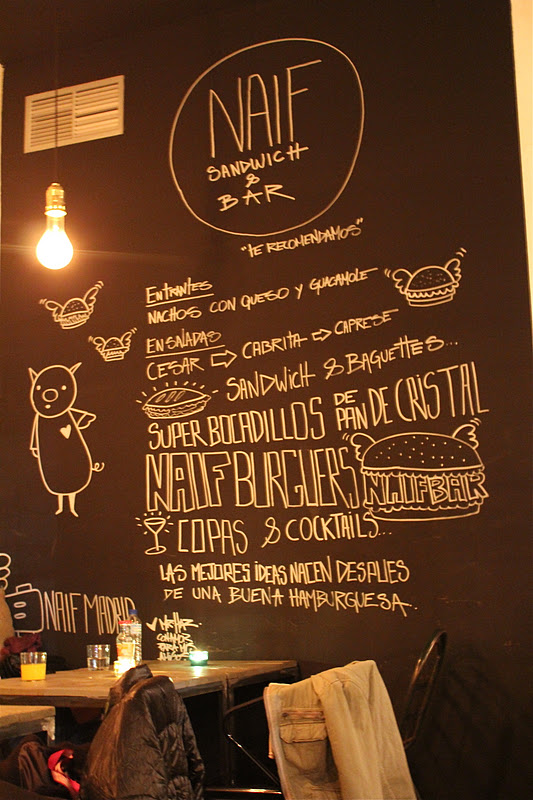 NAIF
SANDWICH
&
BAR
"TE RECOMENDAMOS"
ENTRANTES
NACHOS CON QUESO Y GUACAMOLE
ENSALADAS
CESAR ⇨ CABRITA ⇨ CAPRESE
SANDWICH & BAGUETTES...
SUPER BOCADILLOS DE PAN DE CRISTAL
NAIF BURGUERS
NAIFBAR
COPAS & COCKTAILS...
LAS MEJORES IDEAS NACEN DESPUES
DE UNA BUENA HAMBURGUESA..
NAIF MADRID